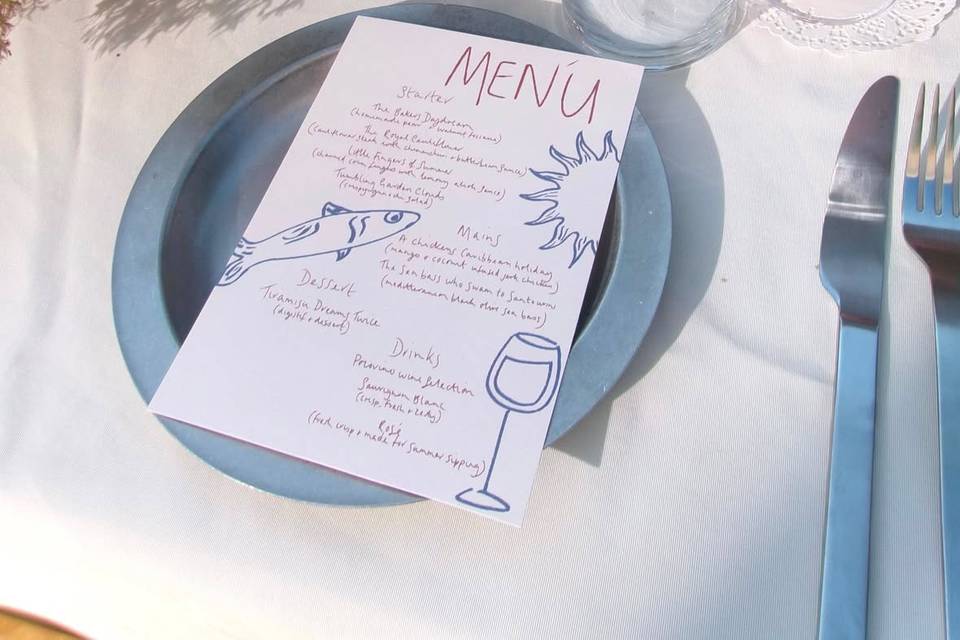 MENÚ
Starter
The Bakers Daydream
(homemade pear + walnut focaccia)
The Royal Cauliflower
(Cauliflower steak with chimichurri + butterbean sauce)
Little Fingers of Summer
(charred corn fingers with lemony aioli sauce)
Tumbling Garden Clouds
(crispy salad)
Mains
A chickens Caribbean holiday
(mango + coconut infused jerk chicken)
The Sea bass who swam to Santorini
(mediterranean black olive sea bass)
Dessert
Tiramisu Dreams Twice
(digestif + dessert)
Drinks
wine Selection
Sauvignon Blanc
(crisp, fresh + zesty)
Rosé
(fresh crisp + made for summer sipping)